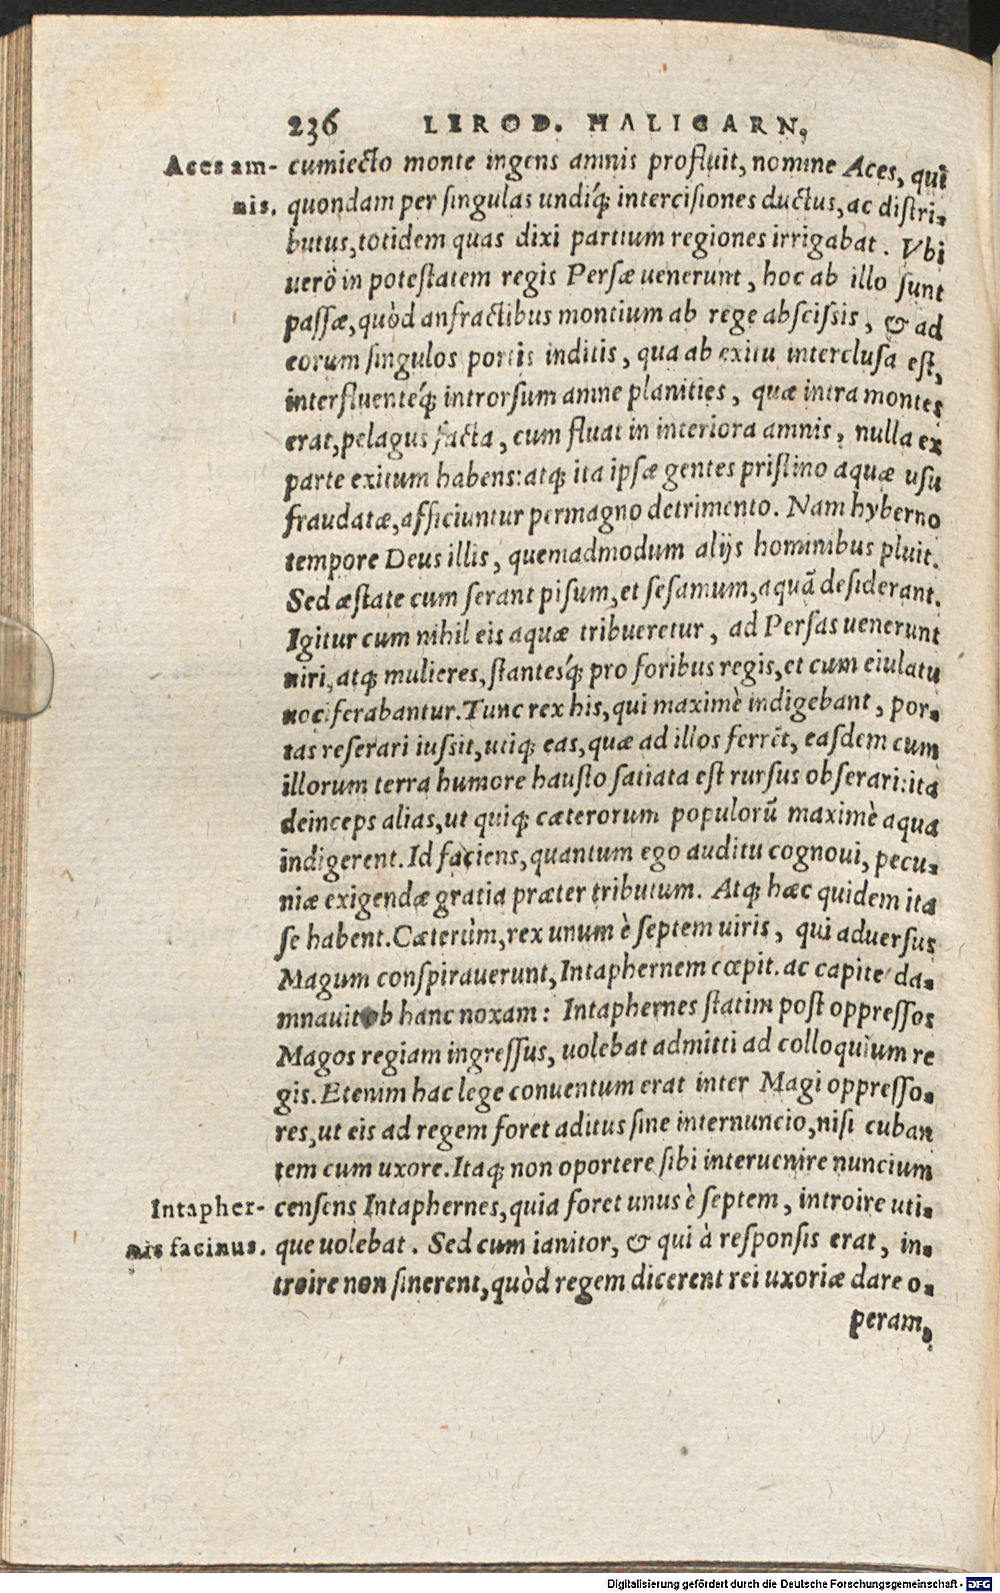 236 LIROD. HALICARN,
Aces am- cumiecto monte ingens amnis profluit, nomine Aces, qui
nis. quondam per singulas undiq́; intercisiones ductus, ac distri-
butus, totidem quas dixi partium regiones irrigabat. Vbi
uerò in potestatem regis Persæ uenerunt, hoc ab illo sunt
passæ, quòd anfractibus montium ab rege abscissis, & ad
eorum singulos portis inditis, qua ab exitu interclusa est,
interfluenteq́; introrsum amne planities, quæ intra montes
erat, pelagus facta, cum fluat in interiora amnis, nulla ex
parte exitum habens: atq; ita ipsæ gentes pristino aquæ usu
fraudatæ, afficiuntur permagno detrimento. Nam hyberno
tempore Deus illis, quemadmodum alijs hominibus pluit.
Sed æstate cum serant pisum, et sesamum, aquā desiderant.
Igitur cum nihil eis aquæ tribueretur, ad Persas uenerunt
uiri, atq; mulieres, stantesq́; pro foribus regis, et cum eiulatu
uociferabantur. Tunc rex his, qui maximè indigebant, por-
tas reserari iussit, utiq; eas, quæ ad illos ferrēt, easdem cum
illorum terra humore hausto satiata est rursus obserari: ita
deinceps alias, ut quiq; cæterorum populorū maximè aqua
indigerent. Id faciens, quantum ego auditu cognoui, pecu-
niæ exigendæ gratia præter tributum. Atq; hæc quidem ita
se habent. Cæterùm, rex unum è septem uiris, qui aduersus
Magum conspirauerunt, Intaphernem cœpit. ac capite da-
mnauit ob hanc noxam: Intaphernes statim post oppressos
Magos regiam ingressus, uolebat admitti ad colloquium re
gis. Etenim hac lege conuentum erat inter Magi oppresso-
res, ut eis ad regem foret aditus sine internuncio, nisi cuban
tem cum uxore. Itaq; non oportere sibi interuenire nuncium
Intapher- censens Intaphernes, quia foret unus è septem, introire uti-
nis facinus. que uolebat. Sed cum ianitor, & qui à responsis erat, in-
troire non sinerent, quòd regem dicerent rei uxoriæ dare o-
peram,
Digitalisierung gefördert durch die Deutsche Forschungsgemeinschaft - DFG